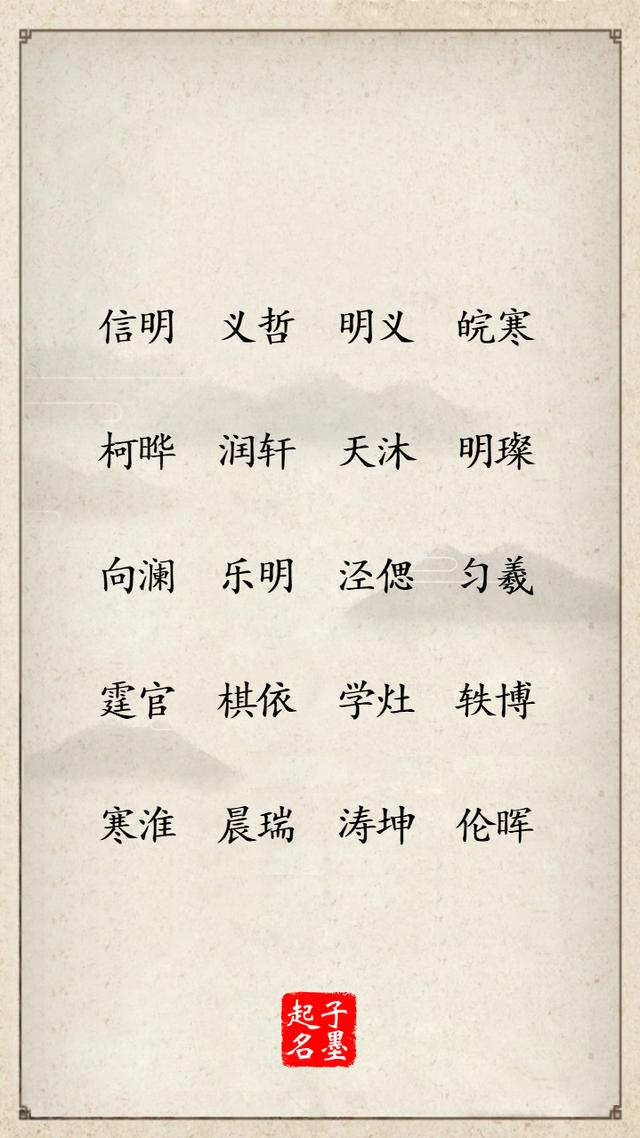 信明 义哲 明义 皖寒
柯晔 润轩 天沐 明璨
向澜 乐明 泾偲 匀羲
霆官 棋依 学灶 轶博
寒淮 晨瑞 涛坤 伦晖
子墨
起名